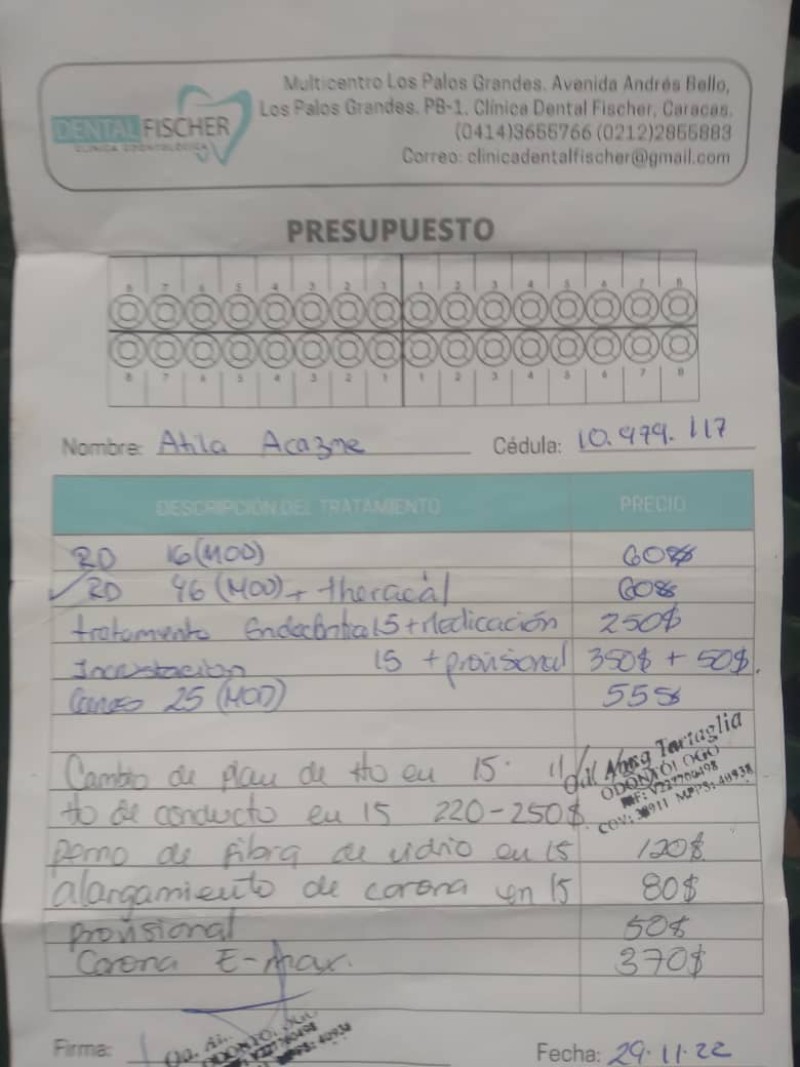 DENTAL FISCHER
CLINICA ODONTOLÓGICA
Multicentro Los Palos Grandes. Avenida Andrés Bello,
Los Palos Grandes. PB-1. Clínica Dental Fischer, Caracas.
(0414)3655766 (0212)2855883
Correo: clinicadentalfischer@gmail.com
PRESUPUESTO
8 7 6 5 4 3 2 1 1 2 3 4 5 6 7 8
8 7 6 5 4 3 2 1 1 2 3 4 5 6 7 8
Nombre: Atila Cédula: 10.979.117
DESCRIPCIÓN DEL TRATAMIENTO PRECIO
RD 16 (MOD) 60$
RD 46 (MOD) + theracal 60$
tratamiento Endodontico 15 + Medicación 250$
Incrustacion 15 + provisional 350$ + 50$.
25 (MOD) 55$
Cambio de plan de tto en 15.
Tartaglia
ODONTÓLOGO
tto de conducto en 15 220-250$
perno de fibra de vidrio en 15 120$
alargamiento de corona en 15 80$
provisional 50$
Corona E-max. 370$
Firma:
Fecha: 29.11.22